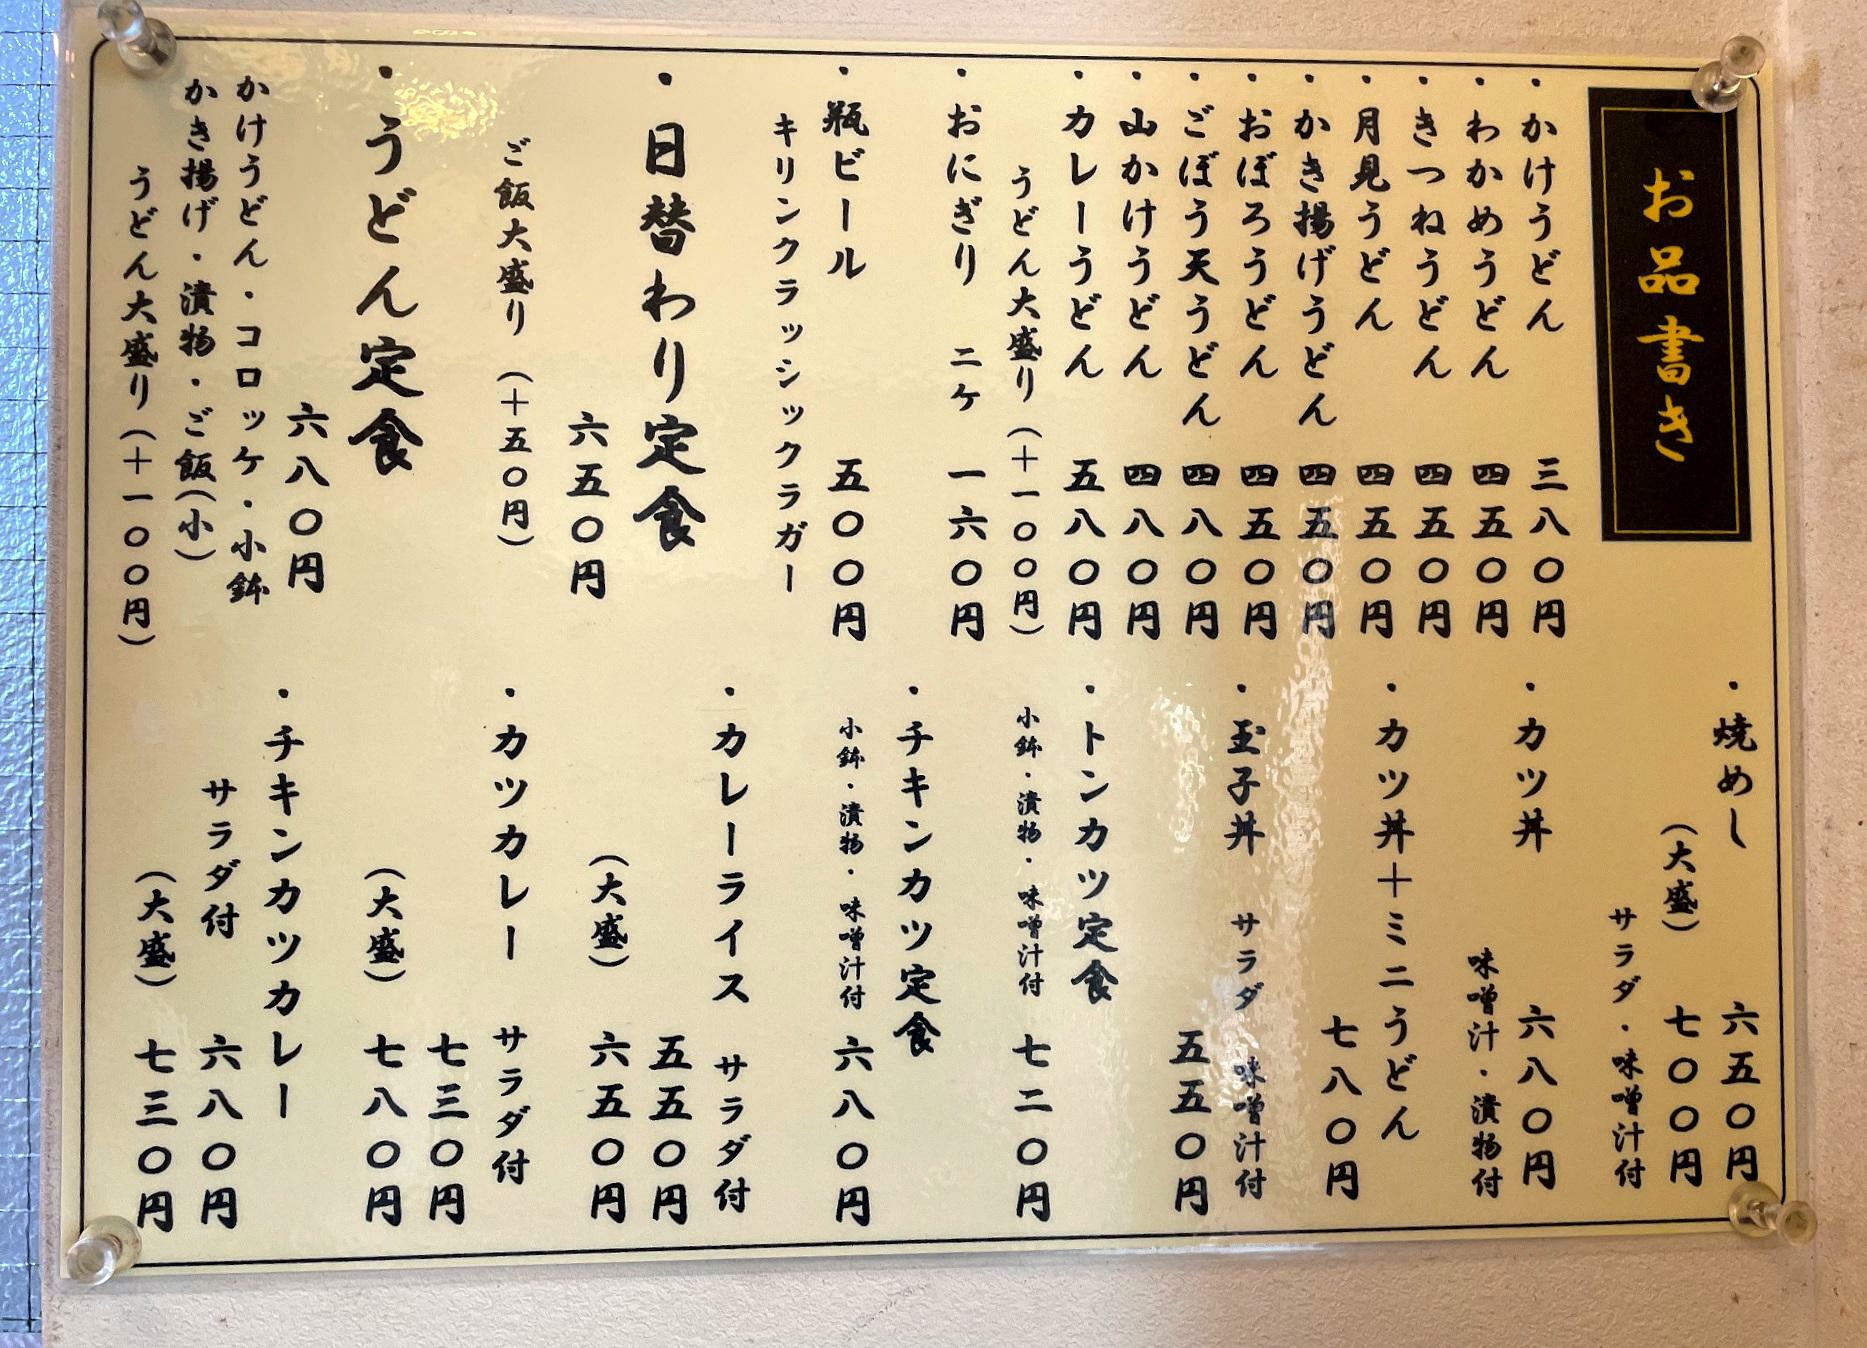 お品書き
・かけうどん 三八〇円
・わかめうどん 四五〇円
・きつねうどん 四五〇円
・月見うどん 四五〇円
・かき揚げうどん 四五〇円
・おぼろうどん 四五〇円
・ごぼう天うどん 四八〇円
・山かけうどん 四八〇円
・カレーうどん 五八〇円
うどん大盛り(+一〇〇円)
・おにぎり 二ケ 一六〇円
・瓶ビール 五〇〇円
キリンクラッシックラガー
・日替わり定食
六五〇円
ご飯大盛り(+五〇円)
・うどん定食
六八〇円
かけうどん・コロッケ・小鉢
かき揚げ・漬物・ご飯(小)
うどん大盛り(+一〇〇円)
・焼めし 六五〇円
(大盛) 七〇〇円
サラダ・味噌汁付
・カツ丼 六八〇円
味噌汁・漬物付
・カツ丼+ミニうどん
七八〇円
・玉子丼 サラダ 味噌汁付
五五〇円
・トンカツ定食
小鉢・漬物・味噌汁付 七二〇円
・チキンカツ定食
小鉢・漬物・味噌汁付 六八〇円
・カレーライス サラダ付
五五〇円
(大盛) 六五〇円
・カツカレー サラダ付
七三〇円
(大盛) 七八〇円
・チキンカツカレー
サラダ付 六八〇円
(大盛) 七三〇円